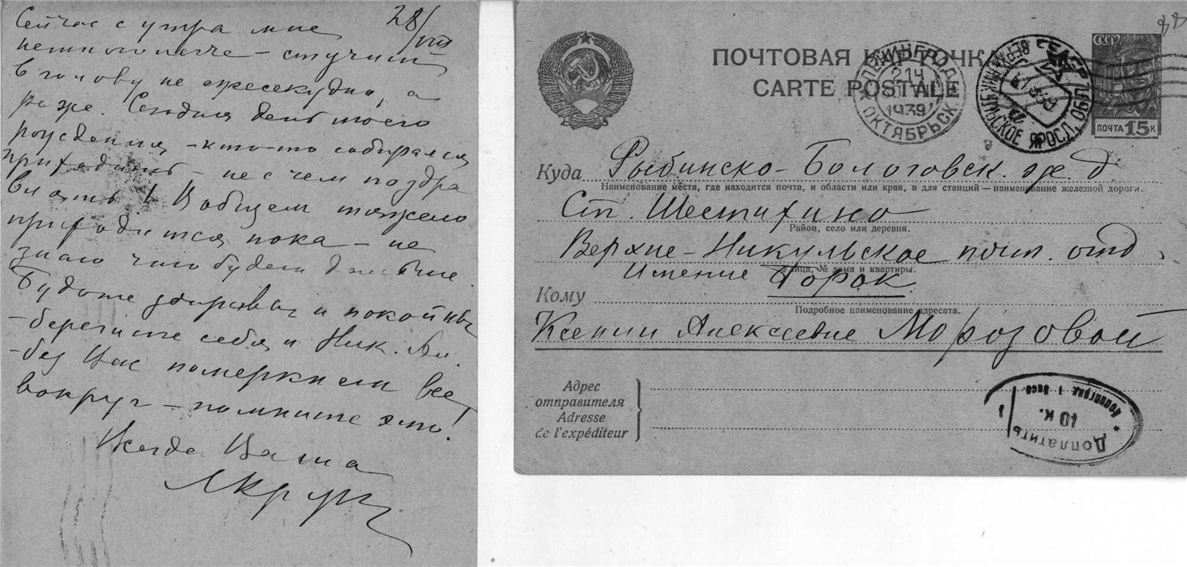 28/VIII
Сейчас с утра мне
немного легче – стучит
в голову не ежесекундно, а
реже. Сегодня день моего
рождения – кто-то собирался
приходить – не с чем поздра
влять! В общем тяжело
приходится пока – не
знаю что будет дальше
Будьте здоровы и покойны
– берегите себя и Ник. Ал.
– без Вас померкнет все
вокруг – помните это!
Всегда Ваша
ПОЧТОВАЯ КАРТОЧКА
CARTE POSTALE
СССР
ПОЧТА 15 К
ОКТЯБРЬСК
1939
Куда Рыбинско-Бологовск. ж. д.
Наименование места, где находится почта, и области или края, а для станций — наименование железной дороги.
Ст. Шестихино
Район, село или деревня.
Верхне-Никульское почт. отд.
Улица, № дома и квартиры.
Имение Борок.
Кому
Подробное наименование адресата.
Ксении Алексеевне Морозовой
Адрес
отправителя
Adresse
de l'expéditeur
Доплатить
10 к.